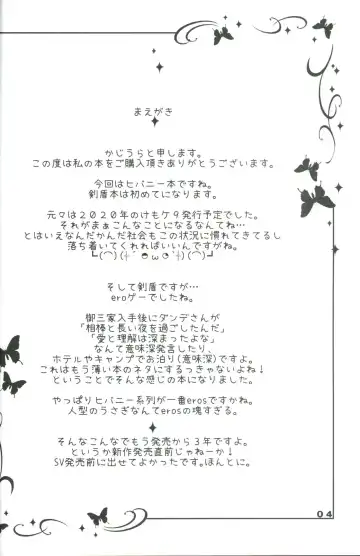 まえがき
かじうらと申します。
この度は私の本をご購入頂きありがとうございます。
今回はヒバニー本ですね。
剣盾本は初めてになります。
元々は2020年のけもケ9発行予定でした。
それがまぁこんなことになるなんてね…
とはいえなんだかんだ社会もこの状況に慣れてきてるし
落ち着いてくれればいいんですがね。
そして剣盾ですが…
eroゲーでしたね。
御三家入手後にダンデさんが
「相棒と長い夜を過ごしたんだ」
「愛と理解は深まったよな」
なんて意味深発言したり、
ホテルやキャンプでお泊り(意味深)ですよ。
これはもう薄い本のネタにするっきゃないよね!
ということでそんな感じの本になりました。
やっぱりヒバニー系列が一番erosですかね。
人型のうさぎなんてerosの塊すぎる。
そんなこんなでもう発売から3年ですよ。
というか新作発売直前じゃねーか!
SV発売前に出せてよかったです。ほんとに。
04